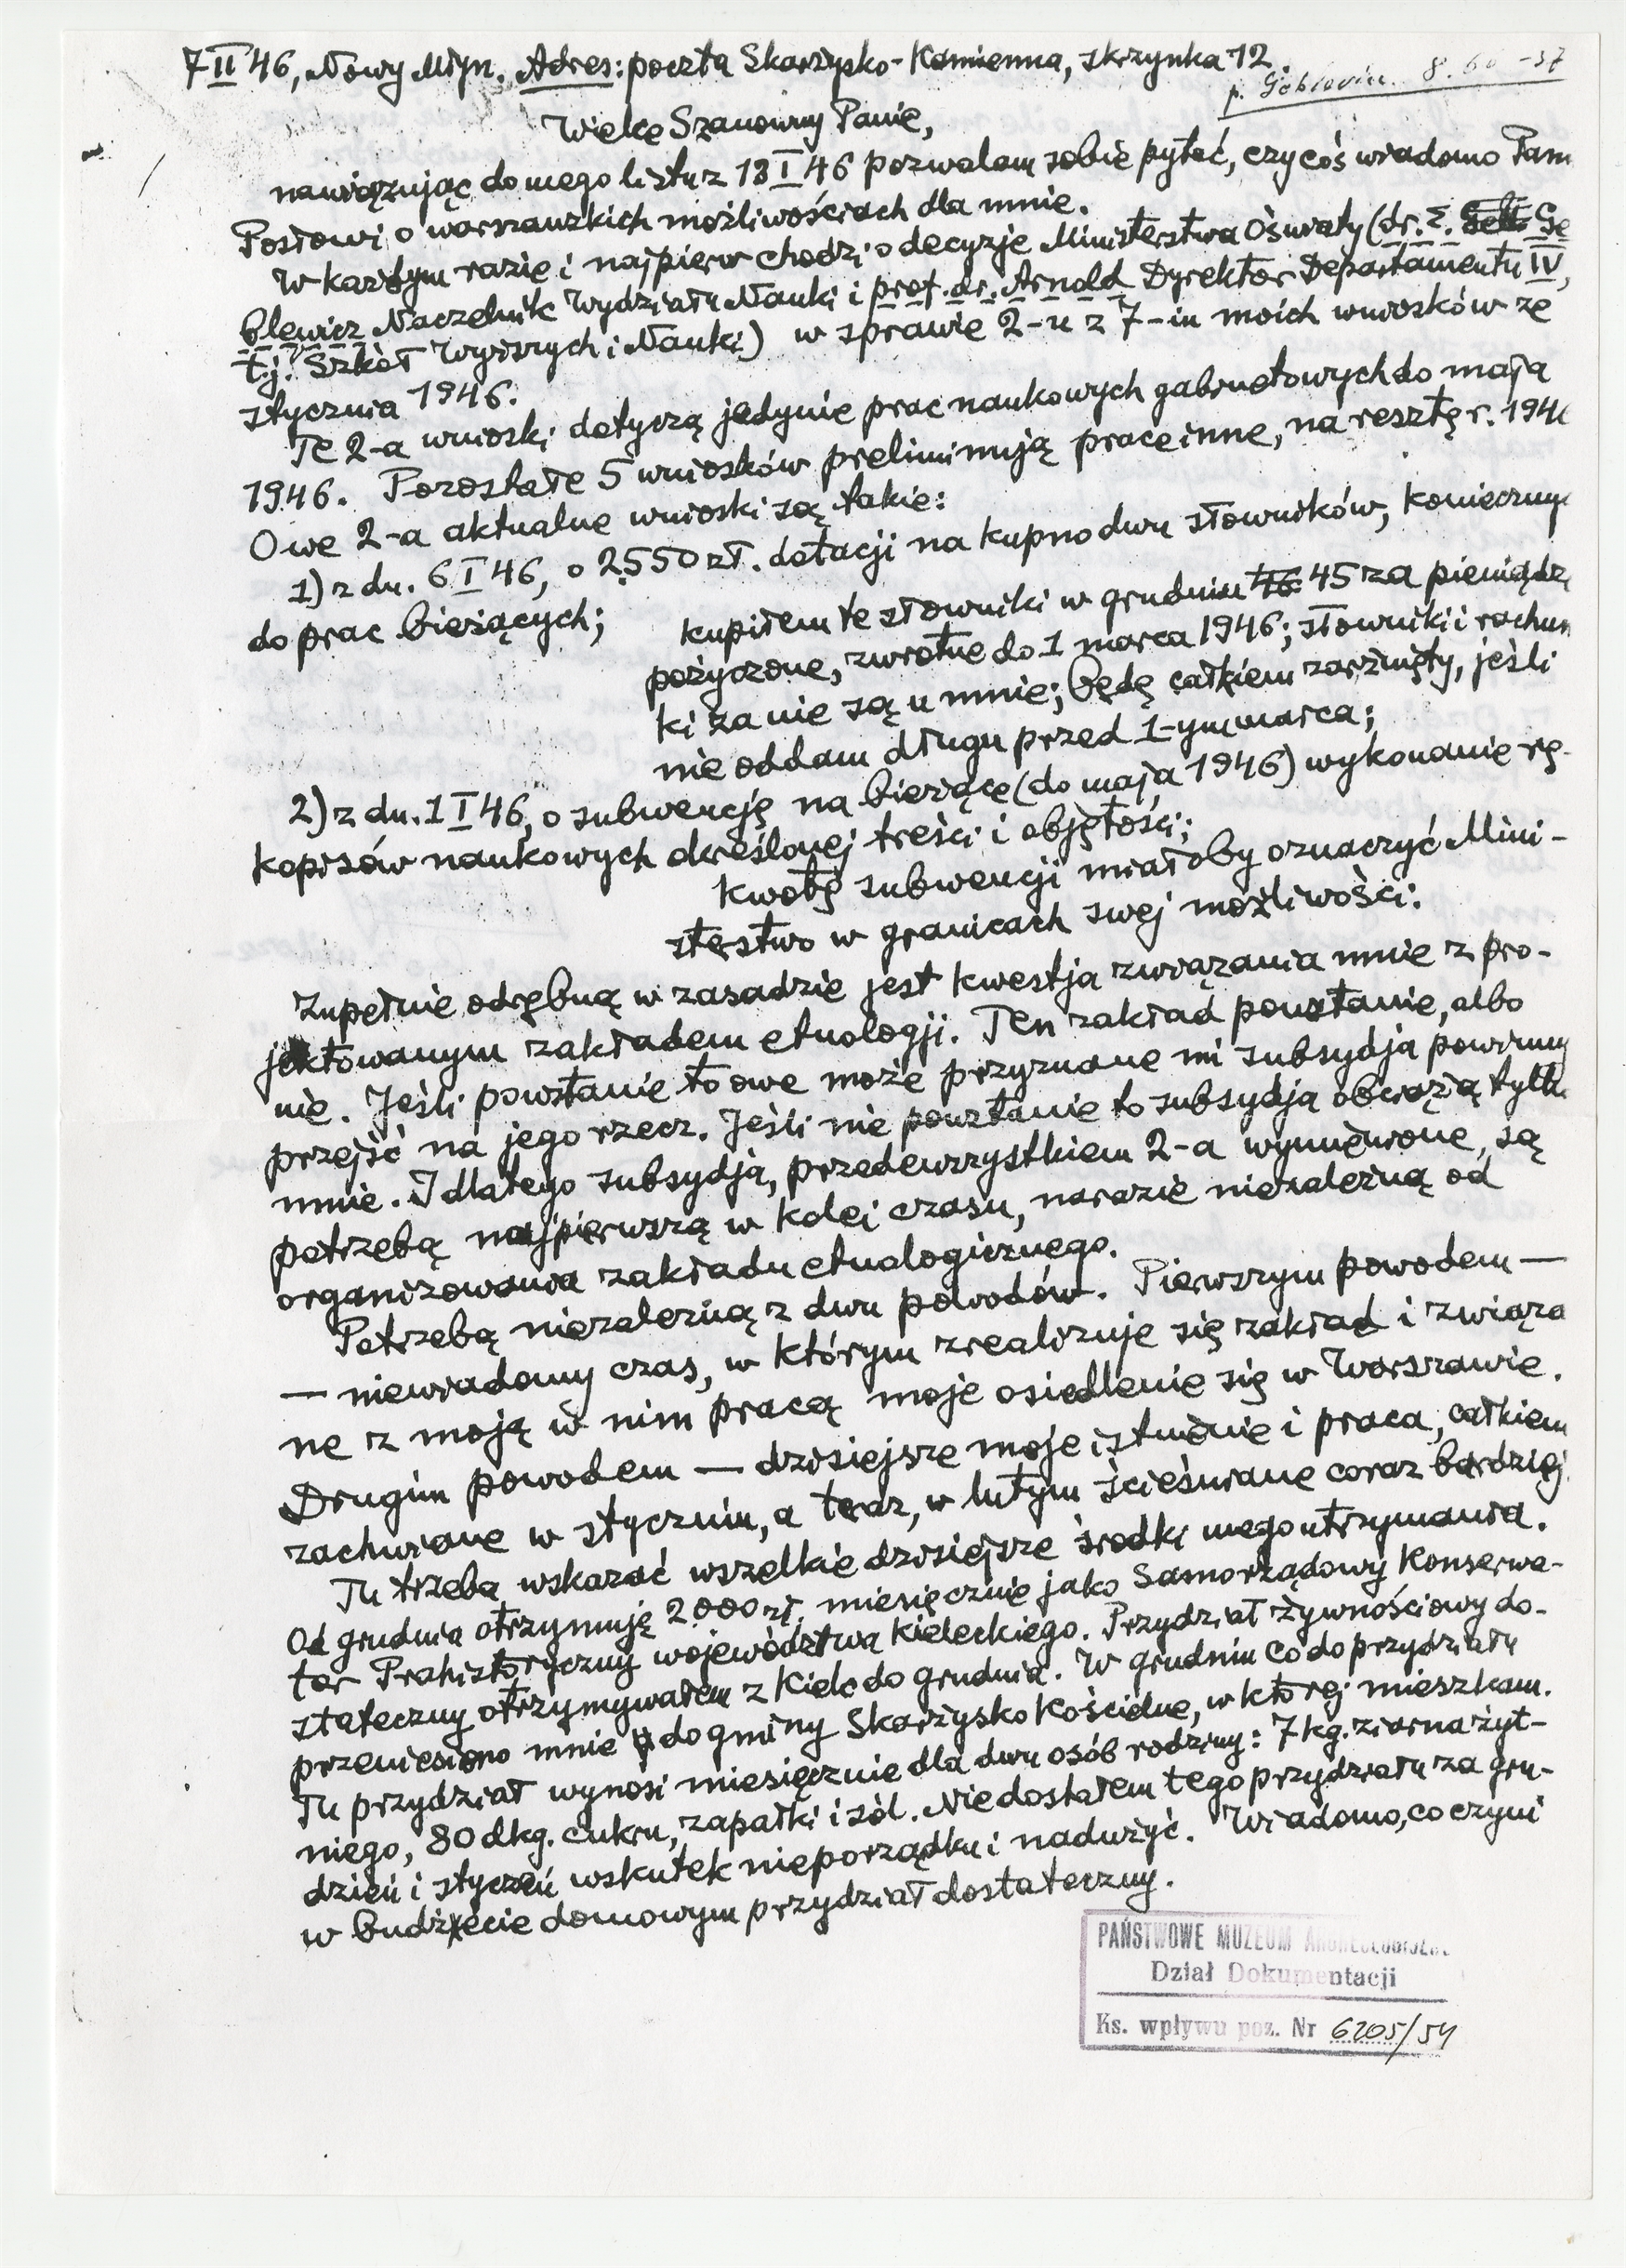 7 II 46, Nowy Młyn. Adres: poczta Skarżysko-Kamienna, skrzynka 12.
p. 8.60-37
Wielce Szanowny Panie,
nawiązując do mego listu z 13 I 46 pozwalam sobie pytać, czy coś wiadomo Panu
Posłowi o warszawskich możliwościach dla mnie.
W każdym razie i najpierw chodzi o decyzje Ministerstwa Oświaty (dr. Z. Gę
blewicz Naczelnik Wydziału Nauki i prof. dr. Arnold Dyrektor Departamentu IV,
t.j. Szkół Wyższych i Nauki) w sprawie 2-u z 7-iu moich wniosków ze
stycznia 1946.
Te 2-a wnioski dotyczą jedynie prac naukowych gabinetowych do maja
1946. Pozostałe 5 wniosków preliminują prace inne, na resztę r. 1946
Owe 2-a aktualne wnioski są takie:
1) z dn. 6 I 46, o 2550 zł. dotacji na kupno dwu słowników, koniecznych
do prac bieżących;
kupiłem te słowniki w grudniu 46 45 za pieniądze
pożyczone, zwrotne do 1 marca 1946; słowniki i rachun
ki za nie są u mnie; będę całkiem zarżnięty, jeśli
nie oddam długu przed 1-ym marca;
2) z dn. 1 I 46, o subwencję na bieżące (do maja 1946) wykonanie rę-
kopisów naukowych określonej treści i objętości;
kwotę subwencji miałoby oznaczyć Mini-
sterstwo w granicach swej możliwości.
Zupełnie odrębną w zasadzie jest kwestja związania mnie z pro-
jektowanym zakładem etnologji. Ten zakład powstanie, albo
nie. Jeśli powstanie to owe może przyznane mi subsydja powinny
przejść na jego rzecz. Jeśli nie powstanie to subsydja obciążą tylko
mnie. I dlatego subsydja, przedewszystkiem 2-a wymienione, są
potrzebą najpierwszą w kolei czasu, narazie niezależną od
organizowania zakładu etnologicznego.
Potrzebą niezależną z dwu powodów. Pierwszym powodem —
— niewiadomy czas, w którym zrealizuje się zakład i związa
ne z moją w nim pracą moje osiedlenie się w Warszawie.
Drugim powodem — dzisiejsze moje istnienie i praca, całkiem
zachwiane w styczniu, a teraz, w lutym ścieśniane coraz bardziej.
Tu trzeba wskazać wszelkie dzisiejsze środki mego utrzymania.
Od grudnia otrzymuję 2.000 zł. miesięcznie jako Samorządowy Konserwa-
tor Prahistoryczny województwa kieleckiego. Przydział żywnościowy do-
stateczny otrzymywałem z Kielc do grudnia. W grudniu co do przydziału
przeniesiono mnie do gminy Skarżysko Kościelne, w której mieszkam.
Tu przydział wynosi miesięcznie dla dwu osób rodziny: 7 kg. ziarna żyt-
niego, 80 dkg. cukru, zapałki i sól. Nie dostałem tego przydziału za gru-
dzień i styczeń wskutek nieporządku i nadużyć. Wiadomo, co czyni
w budżecie domowym przydział dostateczny.
PAŃSTWOWE MUZEUM ARCHEOLOGICZNE
Dział Dokumentacji
Ks. wpływu poz. Nr 6205/54